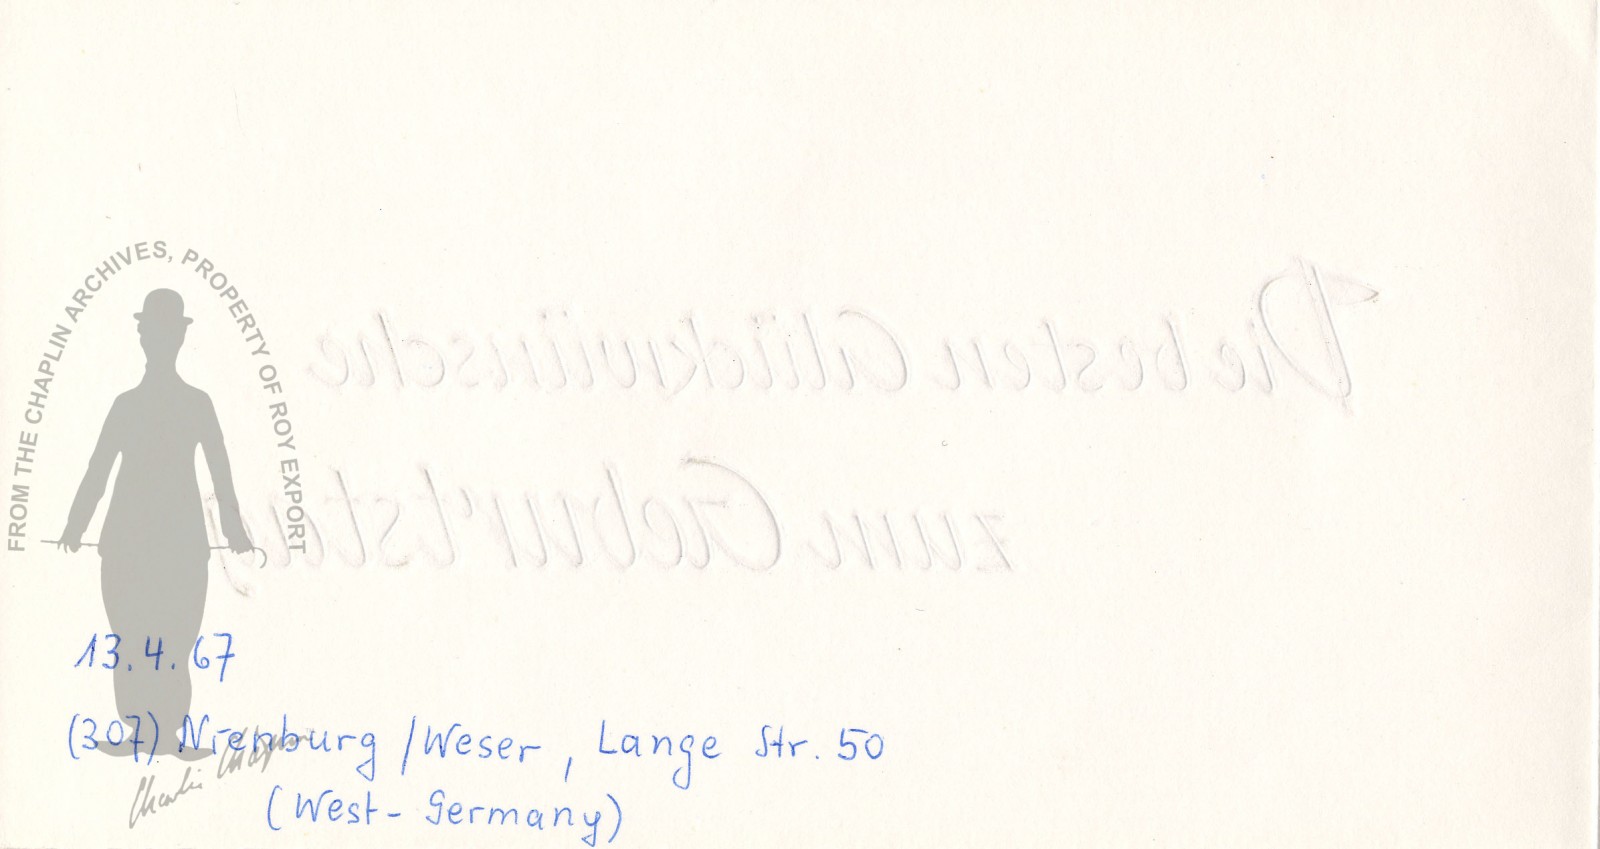 FROM THE CHAPLIN ARCHIVES, PROPERTY OF ROY EXPORT
Die besten Glückwünsche
zum Geburtstag
13.4.67
(307) Nienburg /Weser, Lange Str. 50
(West-Germany)
Charlie Chaplin